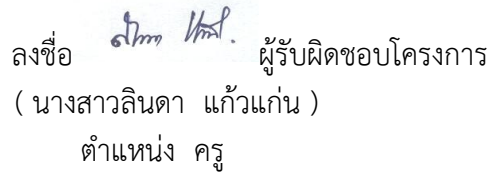 ลงชื่อ ผู้รับผิดชอบโครงการ
( นางสาวลินดา แก้วแก่น )
ตำแหน่ง ครู